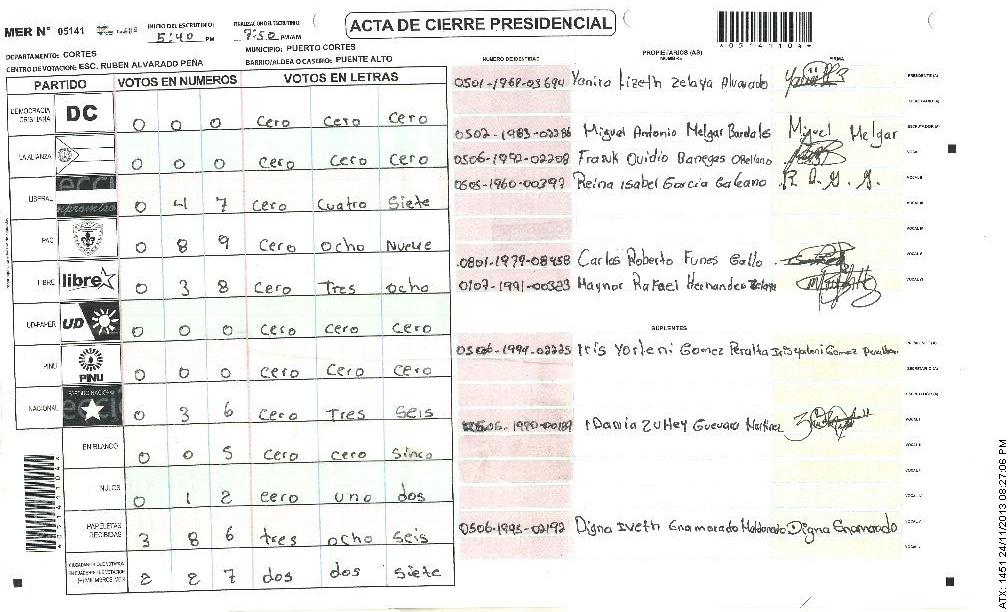 MER N° 05141
INICIO DEL ESCRUTINIO: 5:40 PM
FINALIZACION DEL ESCRUTINIO: 7:50 PM/AM
ACTA DE CIERRE PRESIDENCIAL
*05141104*
DEPARTAMENTO: CORTES
MUNICIPIO: PUERTO CORTES
CENTRO DE VOTACION: ESC. RUBEN ALVARADO PEÑA
BARRIO/ALDEA O CASERIO: PUENTE ALTO
PARTIDO VOTOS EN NUMEROS VOTOS EN LETRAS
DEMOCRACIA CRISTIANA DC 0 0 0 cero cero cero
LA ALIANZA 0 0 0 cero cero cero
LIBERAL 0 4 7 cero cuatro siete
PAC 0 8 9 cero ocho Nueve
LIBRE libre 0 3 8 cero Tres ocho
UD-FAPER UD 0 0 0 cero cero cero
PINU PINU 0 0 0 cero cero cero
NACIONAL 0 3 6 cero Tres Seis
EN BLANCO 0 0 5 cero cero Sinco
NULOS 0 1 2 cero uno dos
PAPELETAS RECIBIDAS 3 8 6 tres ocho seis
2 2 7 dos dos siete
NUMERO DE IDENTIDAD
PROPIETARIOS (AS)
NOMBRE
FIRMA
0501-1968-03694 Yanira Lizeth Zelaya Alvarado PRESIDENTE(A)
SECRETARIO(A)
0502-1983-02286 Miguel Antonio Melgar Bardales Miguel Melgar ESCRUTADOR(A)
0506-1992-02208 Frank Ovidio Banegas Orellano VOCAL I
0505-1960-00397 Reina Isabel Garcia Galeano R. I. G. G. VOCAL II
VOCAL III
VOCAL IV
0801-1979-08958 Carlos Roberto Funes Gallo VOCAL V
0107-1991-00323 Maynor Rafael Hernandez Zelaya VOCAL VI
SUPLENTES
0506-1994-02225 Iris Yorleni Gomez Peralta PRESIDENTE (A)
SECRETARIO (A)
ESCRUTADOR (A)
VOCAL I
VOCAL II
VOCAL III
VOCAL IV
0506-1995-02192 Digna Iveth Enamorado Maldonado Digna Enamorado VOCAL V
ATX: 1451 24/11/2013 08:27:06 PM